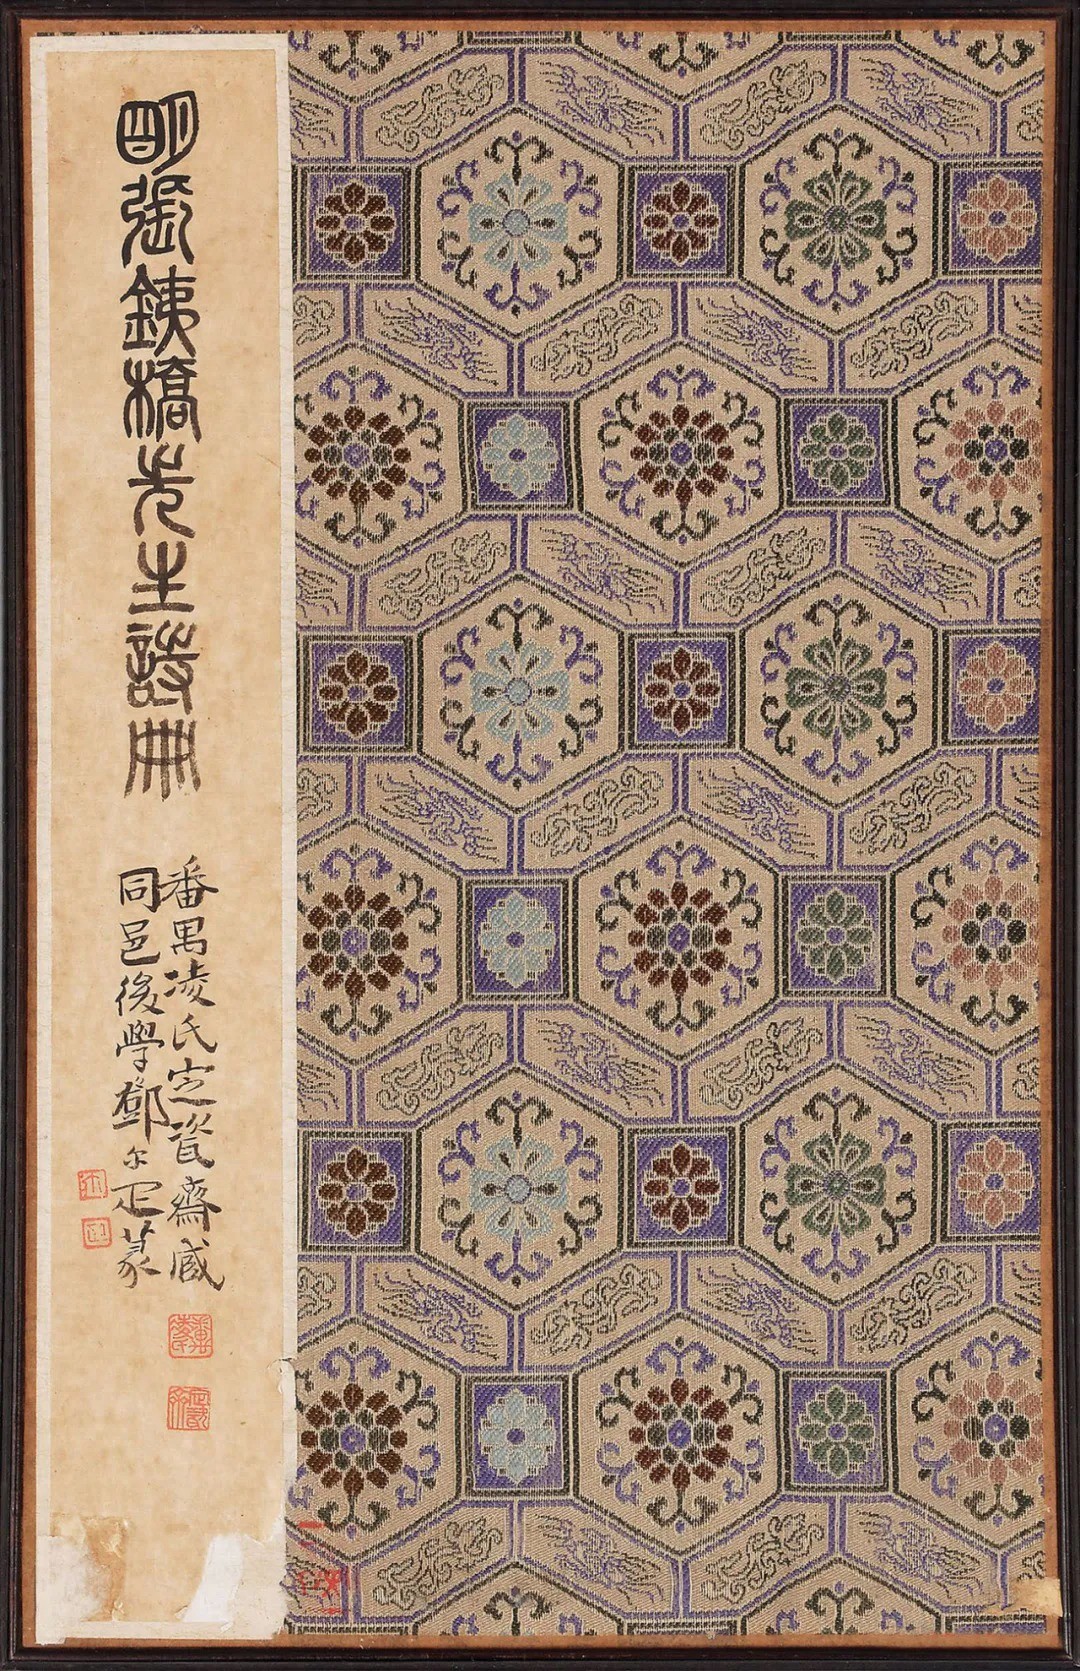 明張鐵橋先生詩冊
番禺凌氏定瓷齋臧
同邑後學鄧尔疋篆